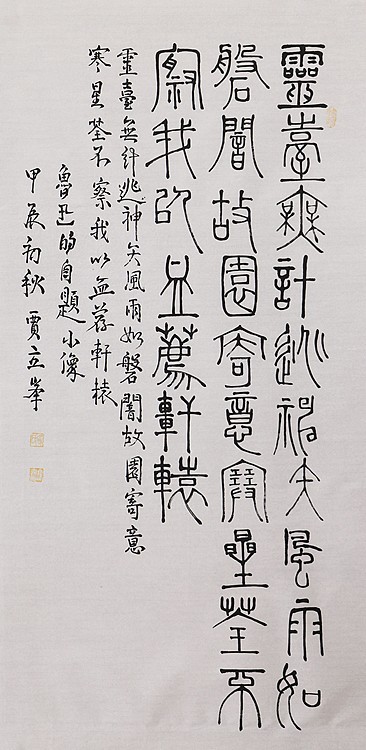 靈臺無計逃神矢風雨如
磐闇故園寄意寒星荃不
察我以血薦軒轅
靈臺無計逃神矢風雨如磐闇故園寄意
寒星荃不察我以血薦軒轅
魯迅的自題小像
甲辰初秋 賈立峯